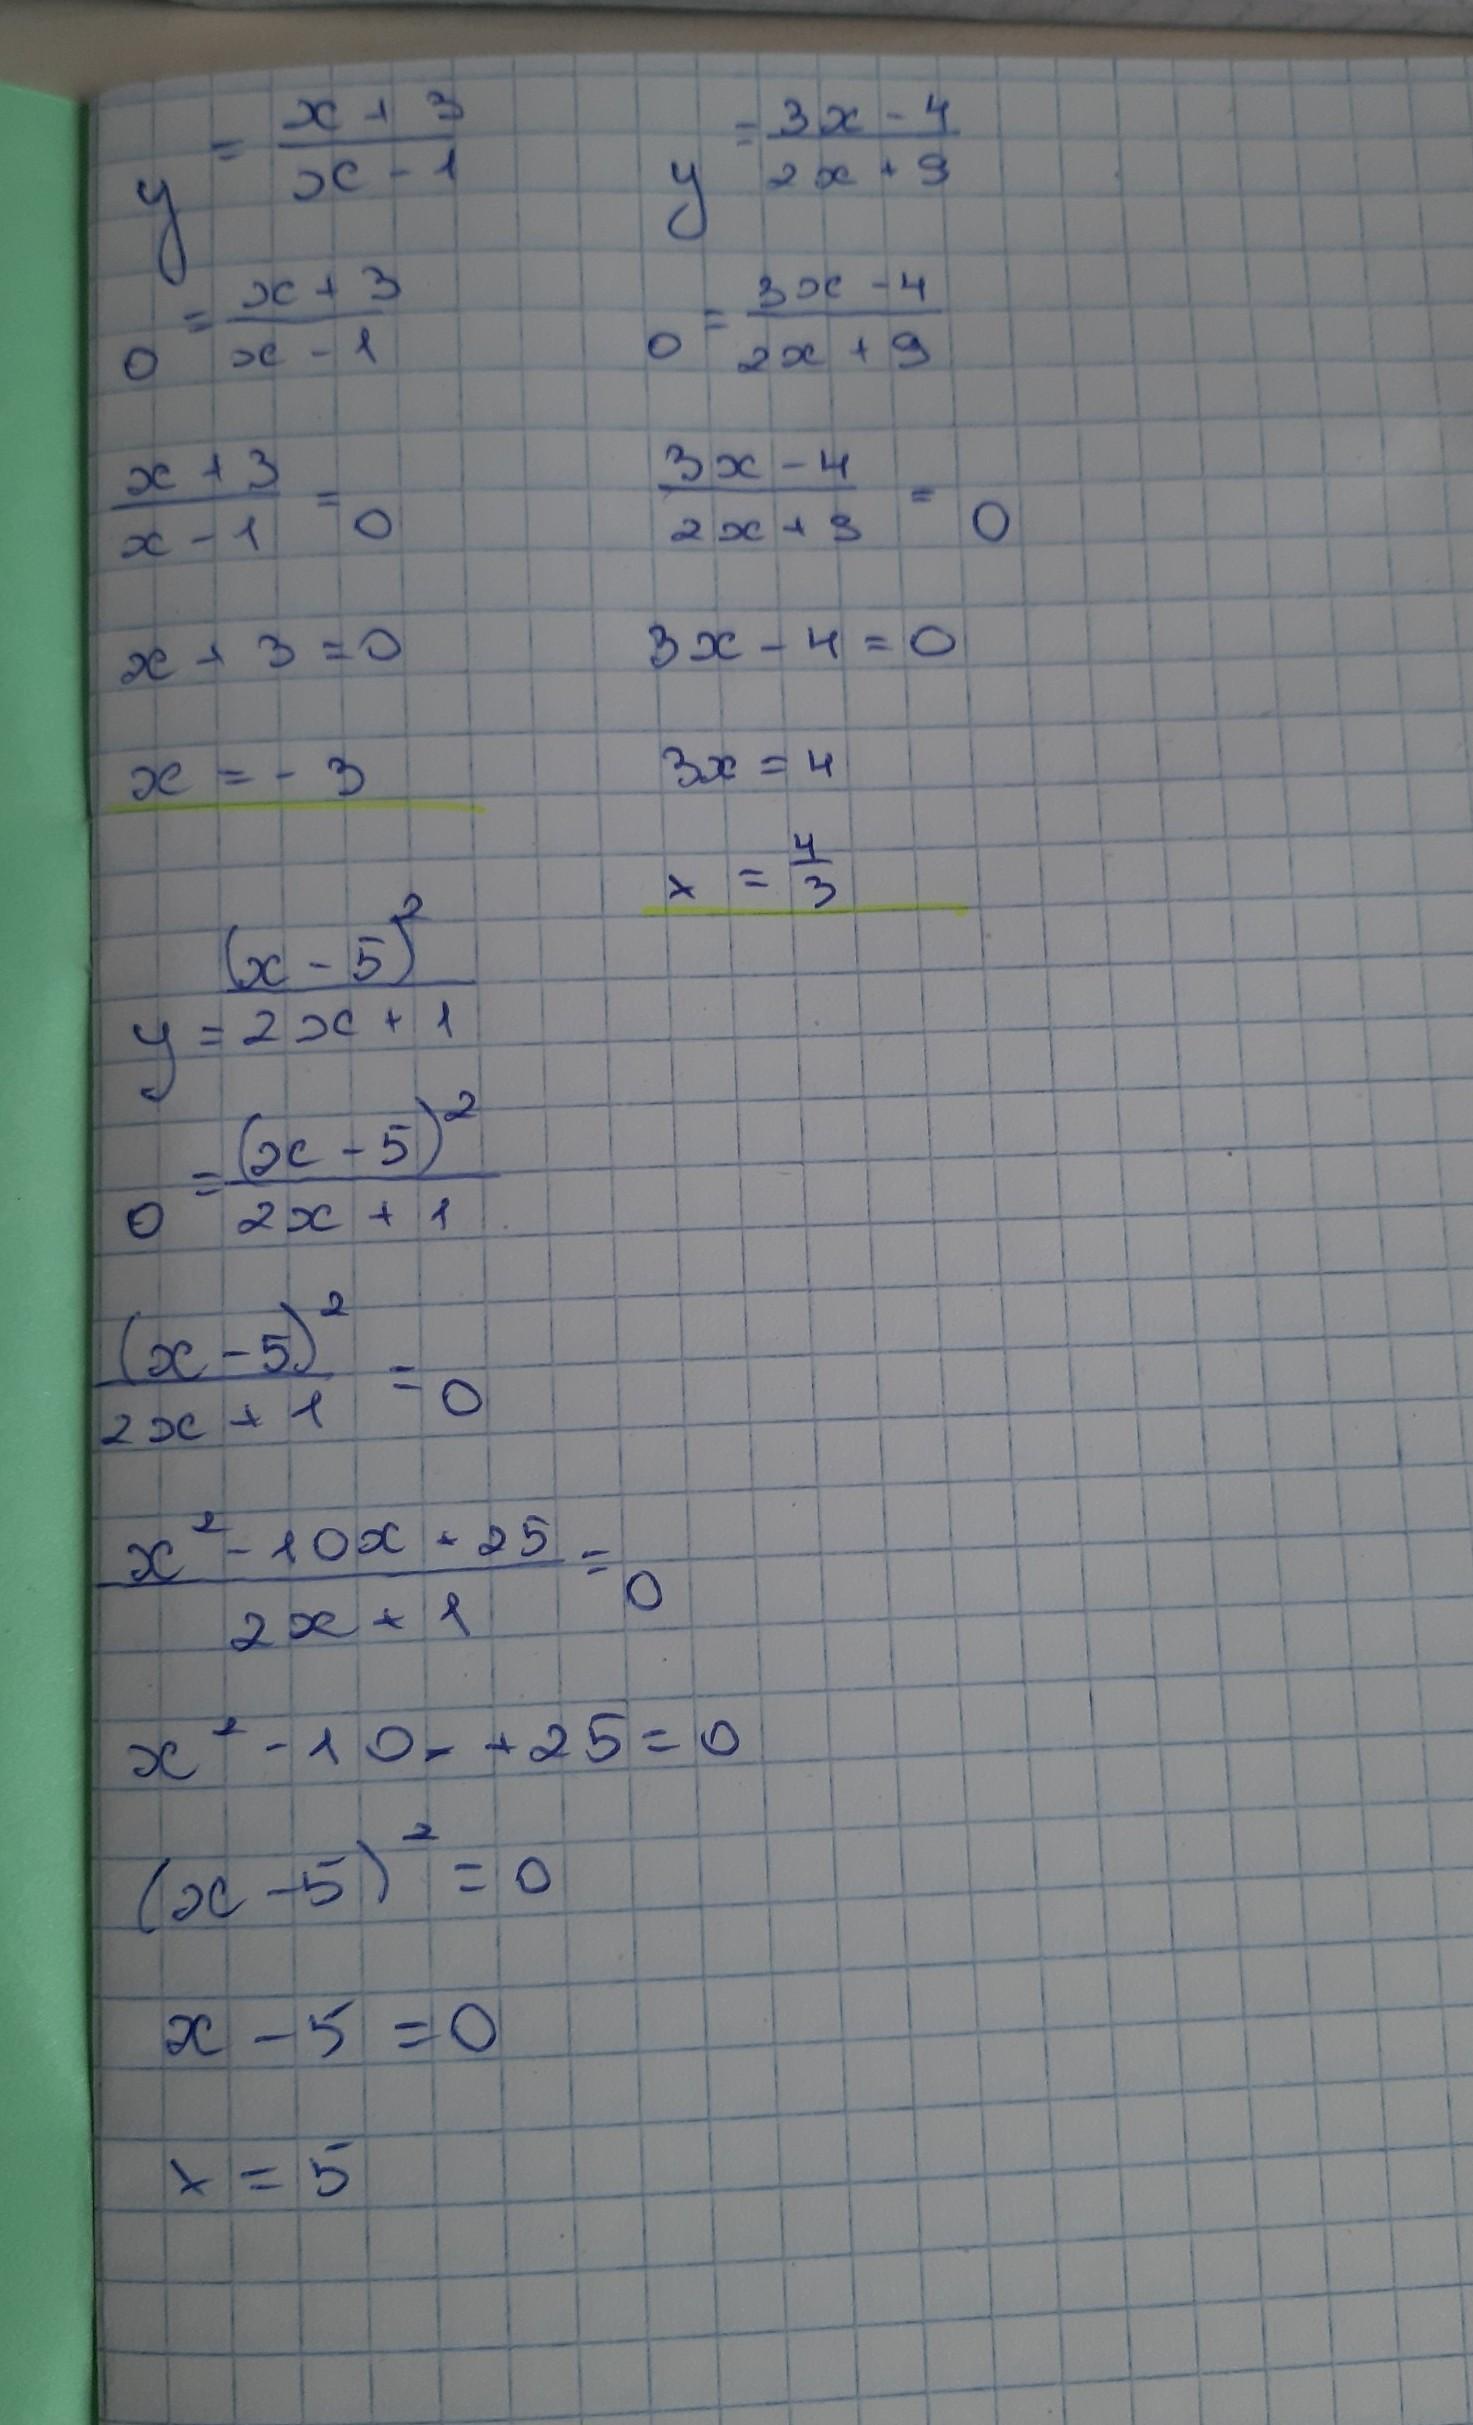 y = (x + 3)/(x - 1)
0 = (x + 3)/(x - 1)
(x + 3)/(x - 1) = 0
x + 3 = 0
x = - 3
y = (3x - 4)/(2x + 9)
0 = (3x - 4)/(2x + 9)
(3x - 4)/(2x + 9) = 0
3x - 4 = 0
3x = 4
x = 4/3
y = (x - 5)²/(2x + 1)
0 = (x - 5)²/(2x + 1)
(x - 5)²/(2x + 1) = 0
(x² - 10x + 25)/(2x + 1) = 0
x² - 10x + 25 = 0
(x - 5)² = 0
x - 5 = 0
x = 5